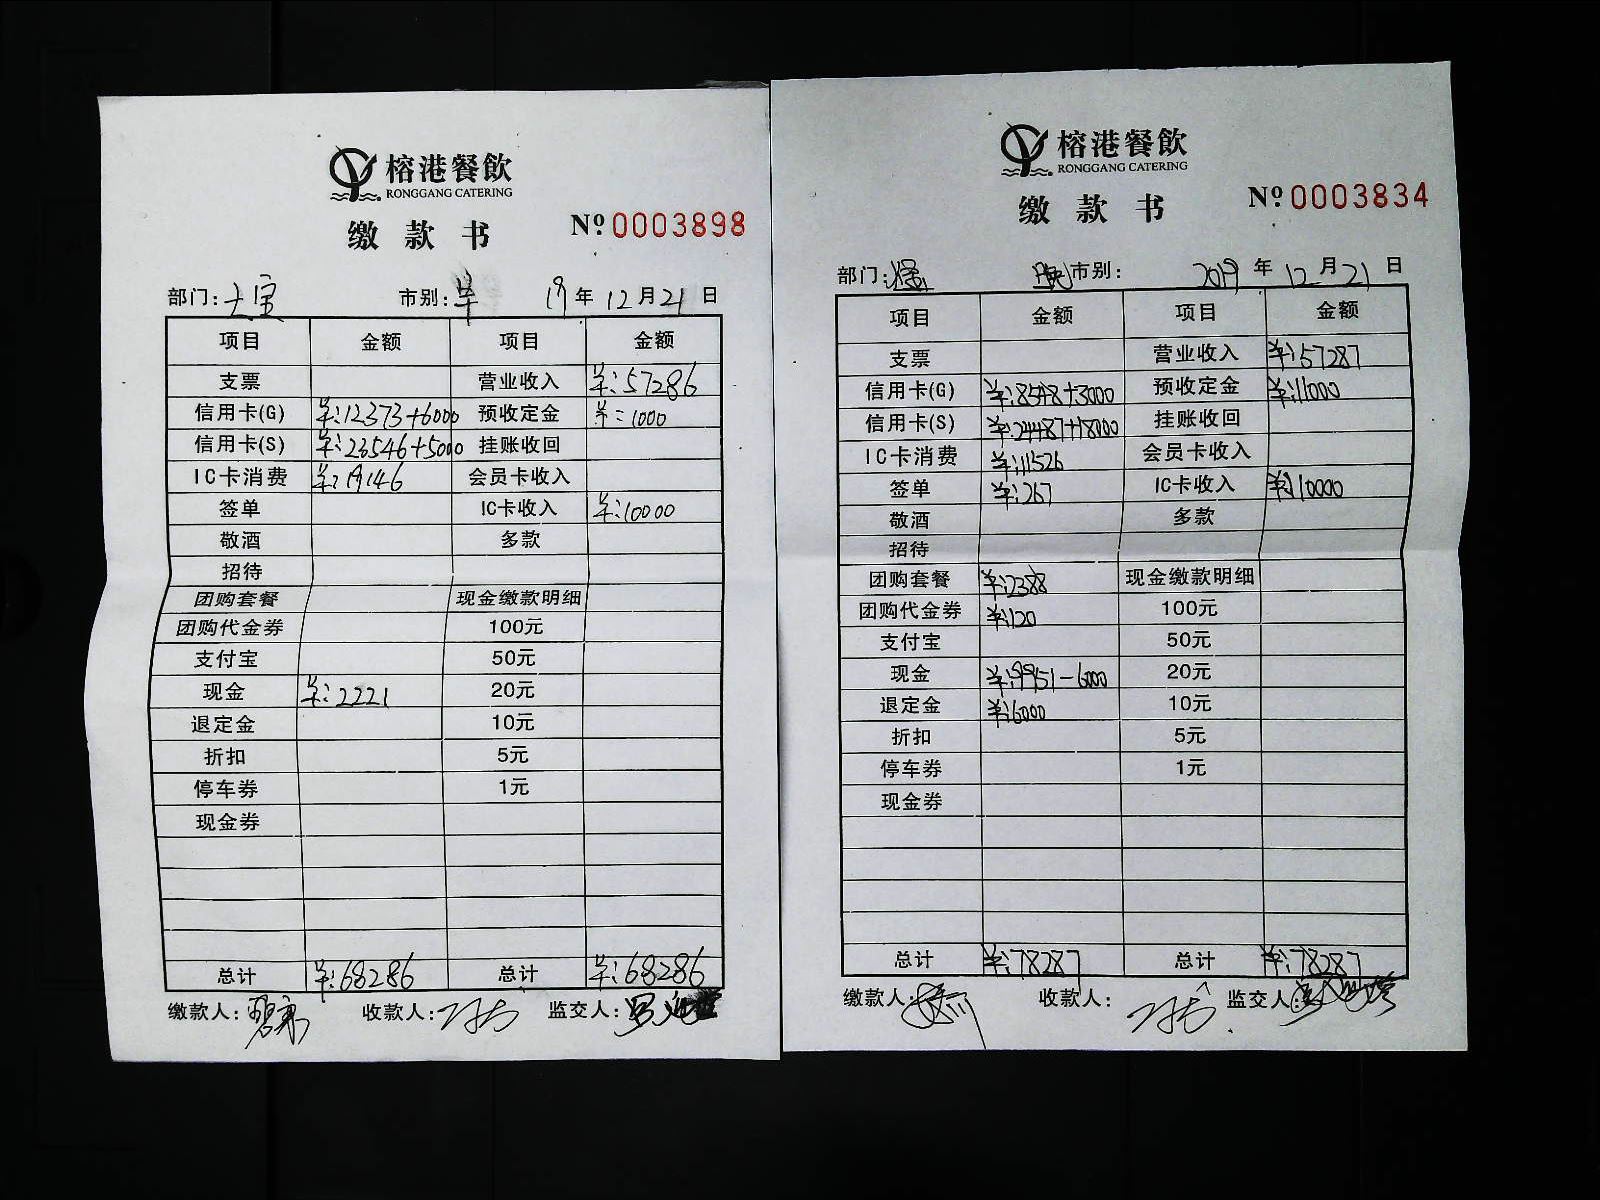 榕港餐飲
RONGGANG CATERING
缴款书 № 0003898
部门: 大宝 市别: 19年12月21日
项目 金额 项目 金额
支票 营业收入 ¥:57286
信用卡(G) ¥:12373+6000 预收定金 ¥:1000
信用卡(S) ¥:23546+5000 挂账收回
IC卡消费 ¥:19146 会员卡收入
签单 IC卡收入 ¥:10000
敬酒 多款
招待
团购套餐 现金缴款明细
团购代金券 100元
支付宝 50元
现金 ¥:2221 20元
退定金 10元
折扣 5元
停车券 1元
现金券
总计 ¥:68286 总计 ¥:68286
缴款人: 收款人: 监交人:
榕港餐飲
RONGGANG CATERING
缴款书 № 0003834
部门: 晚市别: 2019年12月21日
项目 金额 项目 金额
支票 营业收入 ¥:57287
信用卡(G) ¥:8548+3000 预收定金 ¥:11000
信用卡(S) ¥:24487+18000 挂账收回
IC卡消费 ¥:11526 会员卡收入
签单 ¥:267 IC卡收入 ¥:10000
敬酒 多款
招待
团购套餐 ¥:2388 现金缴款明细
团购代金券 ¥:120 100元
支付宝 50元
现金 ¥:9951-6000 20元
退定金 ¥:6000 10元
折扣 5元
停车券 1元
现金券
总计 ¥:78287 总计 ¥:78287
缴款人: 收款人: 监交人: